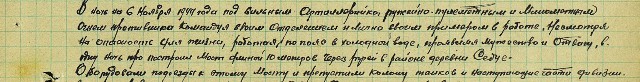 В ночь на 6 Ноября 1944 года под сильным Артиллерийско, ружейно-пулеметным и Минометным
Огнем противника командуя своим Отделением и Личным своим примером в работе, Несмотря
На опасность для жизни, работая по пояс в холодной воде, проявляя Мужество и Отвагу, в
одну ночь построил Мост длиной 10 метров через в районе деревни
Оборудовал подъезды к этому Мосту и пропустил колонну танков и Наступающие части дивизии.